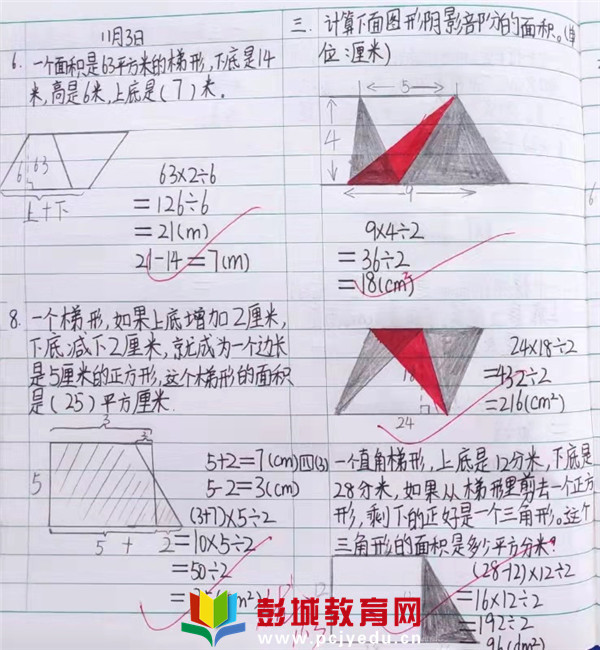 11月3日
6. 一个面积是63平方米的梯形,下底是14
米,高是6米,上底是(7)米。
6 63
上+下
63×2÷6
=126÷6
=21(m)
21-14=7(m)
8. 一个梯形,如果上底增加2厘米,
下底减下2厘米,就成为一个边长
是5厘米的正方形,这个梯形的面积
是(25)平方厘米.
3
2
5
5 + 2
5+2=7(cm)
5-2=3(cm)
(3+7)×5÷2
=10×5÷2
=50÷2
三.计算下面图形阴影部分的面积。(单
位:厘米)
5
4
9
9×4÷2
=36÷2
=18(cm²)
18
24
24×18÷2
=432÷2
=216(cm²)
四(3)一个直角梯形,上底是12分米,下底是
28分米,如果从梯形里剪去一个正方
形,剩下的正好是一个三角形。这个
三角形的面积是多少平方分米?
(28-12)×12÷2
=16×12÷2
=192÷2
=96(dm²)
彭城教育网
www.pcjyedu.cn